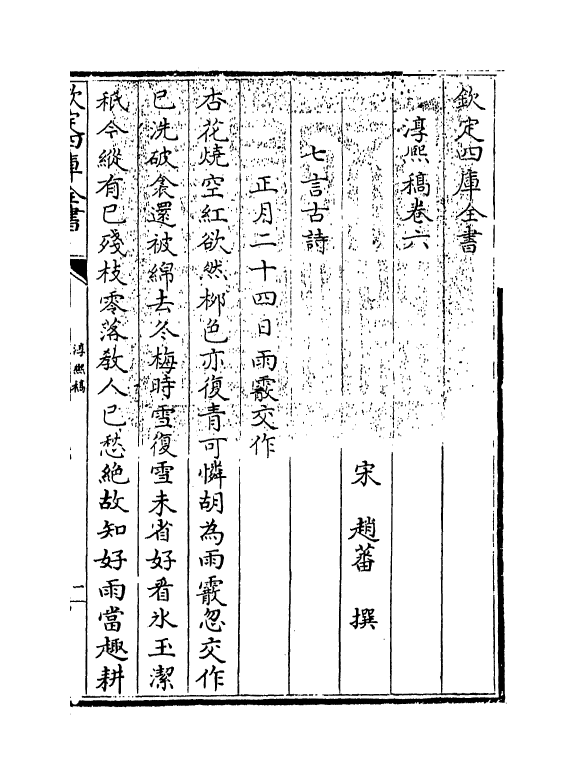 欽定四庫全書
淳熙稿卷六
宋 趙蕃 撰
七言古詩
正月二十四日雨霰交作
杏花燒空紅欲然柳色亦復青可憐胡為雨霰忽交作
已洗破衾還被綿去冬梅時雪復雪未省好看氷玉潔
秖今縱有已殘枝零落教人已愁絶故知好雨當趣耕
欽定四庫全書
淳熙稿
一